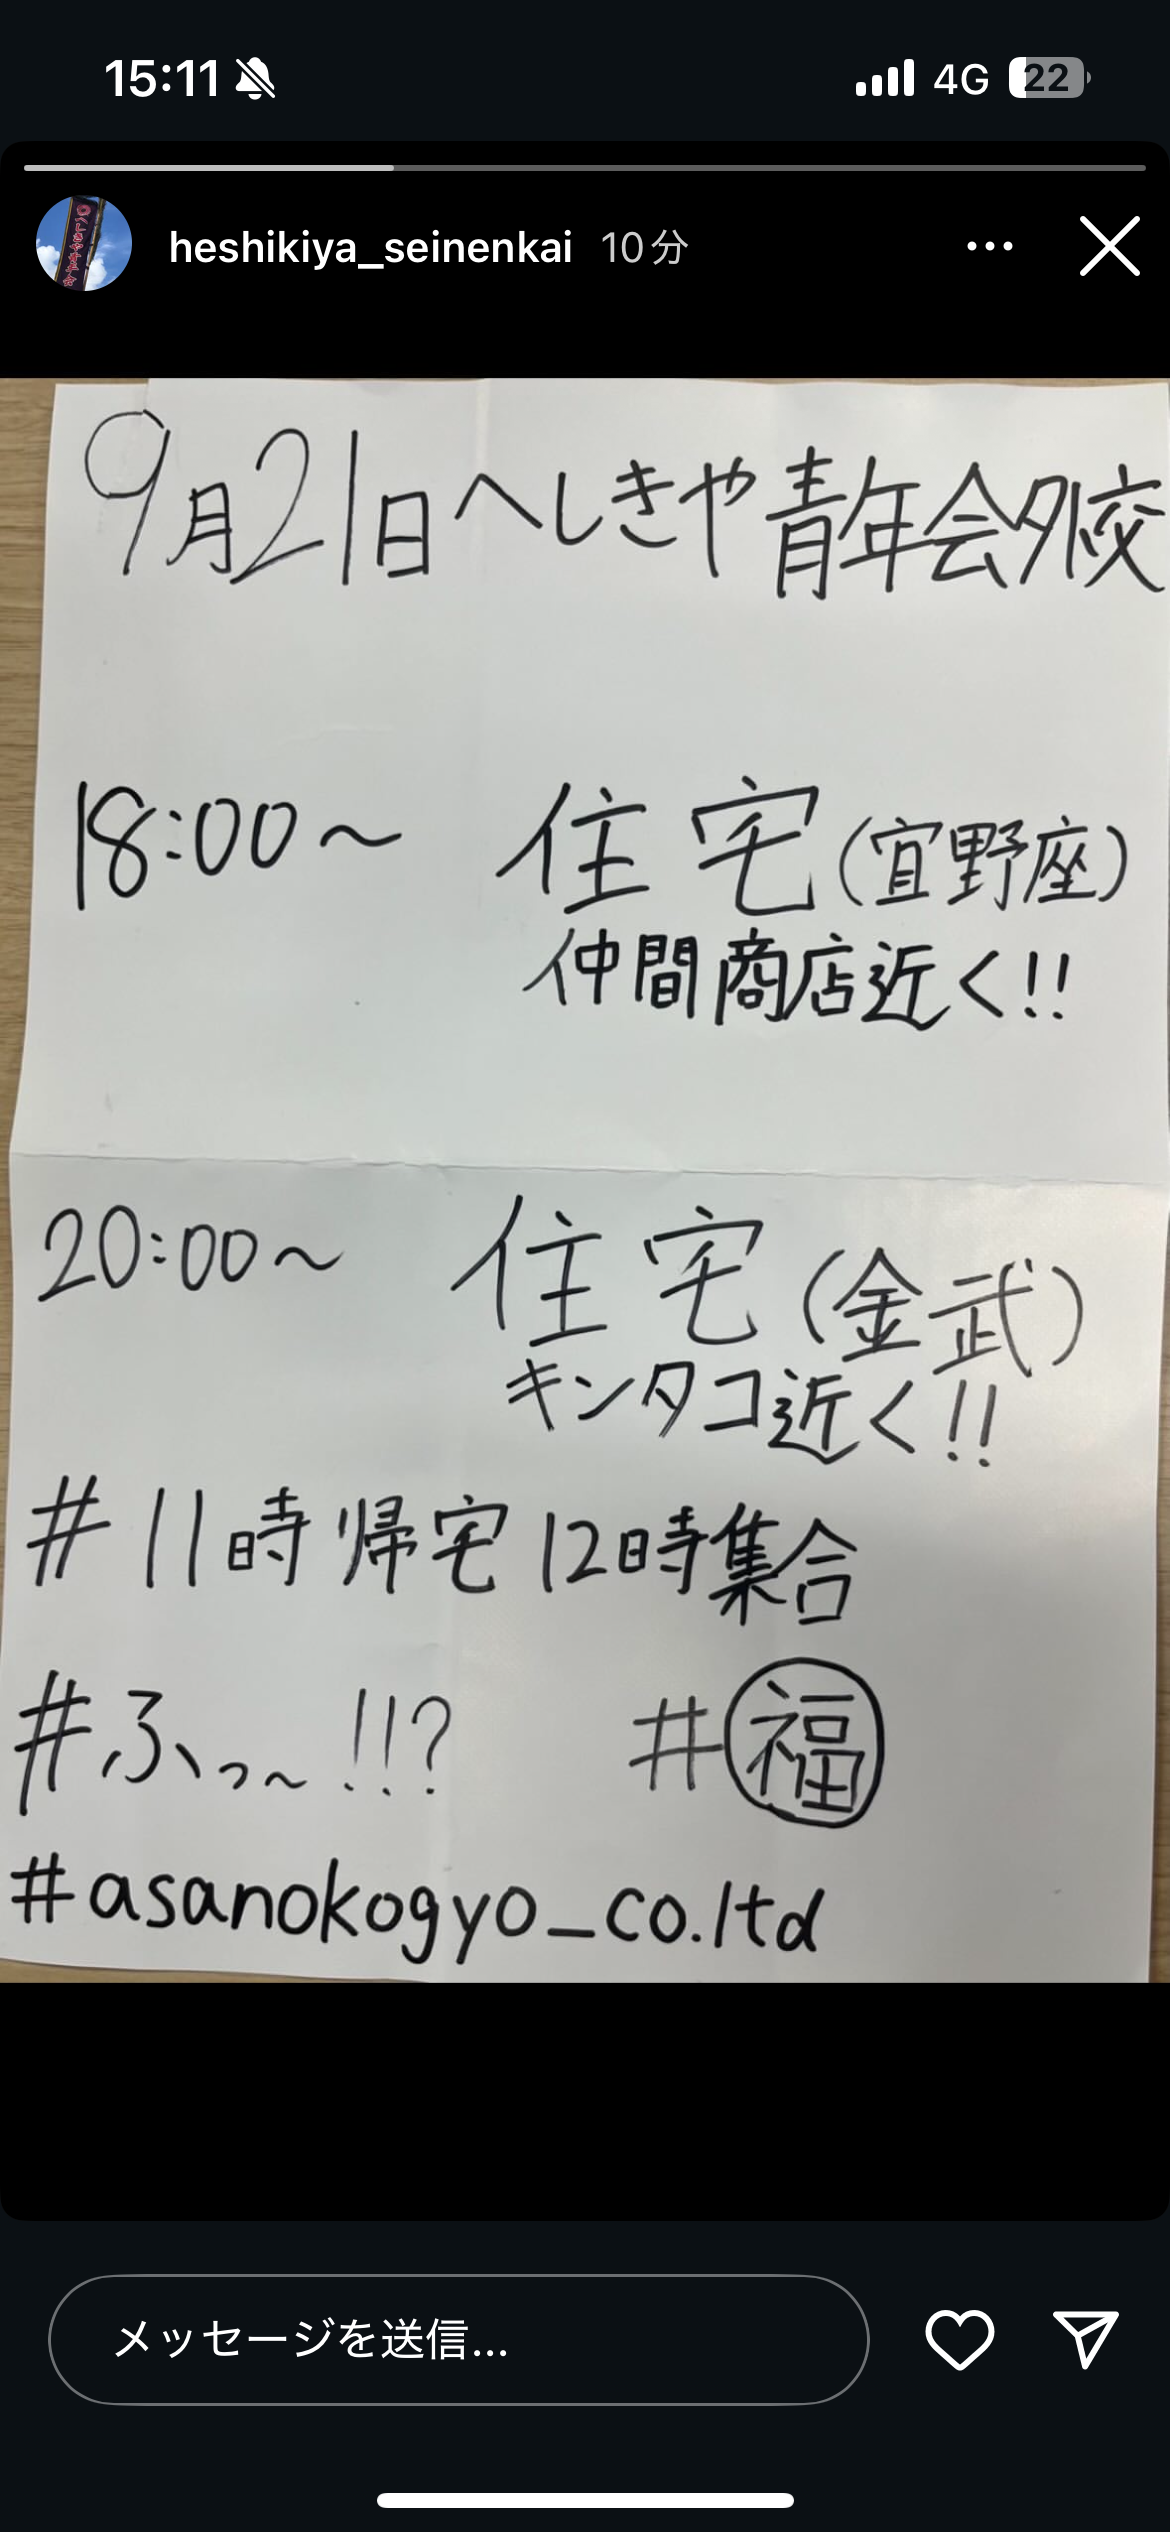 15:11
4G
22
heshikiya_seinenkai 10分
9月21日へしきや青年会外交
18:00～ 住宅(宜野座)
仲間商店近く!!
20:00～ 住宅(金武)
キンタコ近く!!
#11時帰宅12時集合
#ふっ～!!? #福
#asanokogyo_co.ltd
メッセージを送信...